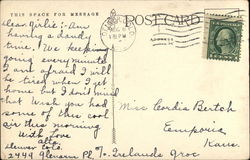 THIS SPACE FOR MESSAGE
POST CARD
Dear Girlie:- Am
having a dandy
time. We keep
going every minute
I am afraid I will
be tired when I get
home but I don't mind
that. Wish you had
some of this cool
air this morning
With Love
Denver Colo.
2444 Glenarm Pl. % Irelands Groc
Miss Cordia Bertch
Emporia
Kans.